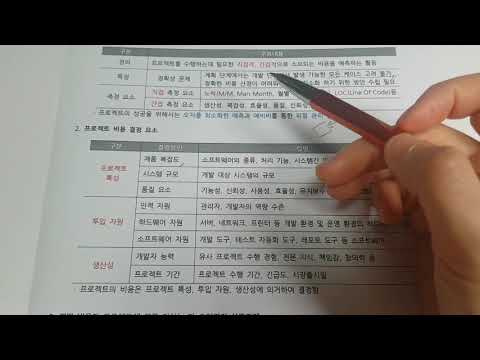 구분
정의 프로젝트를 수행하는데 필요한 직접적, 간접적으로 소요되는 비용을 예측하는 활동
특성 정확성 문제 계획 단계에서는 개발 발생 가능한 모든 케이스 고려 불가,
정확한 비용 산정이 방안 수립 필요
측정 요소 직접 측정 요소 노력(M/M, Man Month, 월별 LOC(Line Of Code)등
간접 측정 요소 생산성, 복잡성, 효율성, 품질,
- 프로젝트의 성공을 위해서는 오차를 최소화한 예측과 예비비를 통한 위험 관리
2. 프로젝트 비용 결정 요소
구분 결정요인 설명
프로젝트 특성 제품 복잡도 소프트웨어의 종류, 처리 기능, 시스템간
시스템 규모 개발 대상 시스템의 규모
품질 요소 기능성, 신뢰성, 사용성, 효율성, 유지보수
투입 자원 인력 자원 관리자, 개발자의 역량 수준
하드웨어 자원 서버, 네트워크, 프린터 등 개발 환경 및 운영 환경의
소프트웨어 자원 개발 도구, 테스트 자동화 도구, 레포트 도구 등 소프트
생산성 개발자 능력 유사 프로젝트 수행 경험, 전문 지식, 책임감, 창의력 등
프로젝트 기간 프로젝트 수행 기간, 긴급도, 시장출시일
- 프로젝트의 비용은 프로젝트 특성, 투입 자원, 생산성에 의거하여 결정함